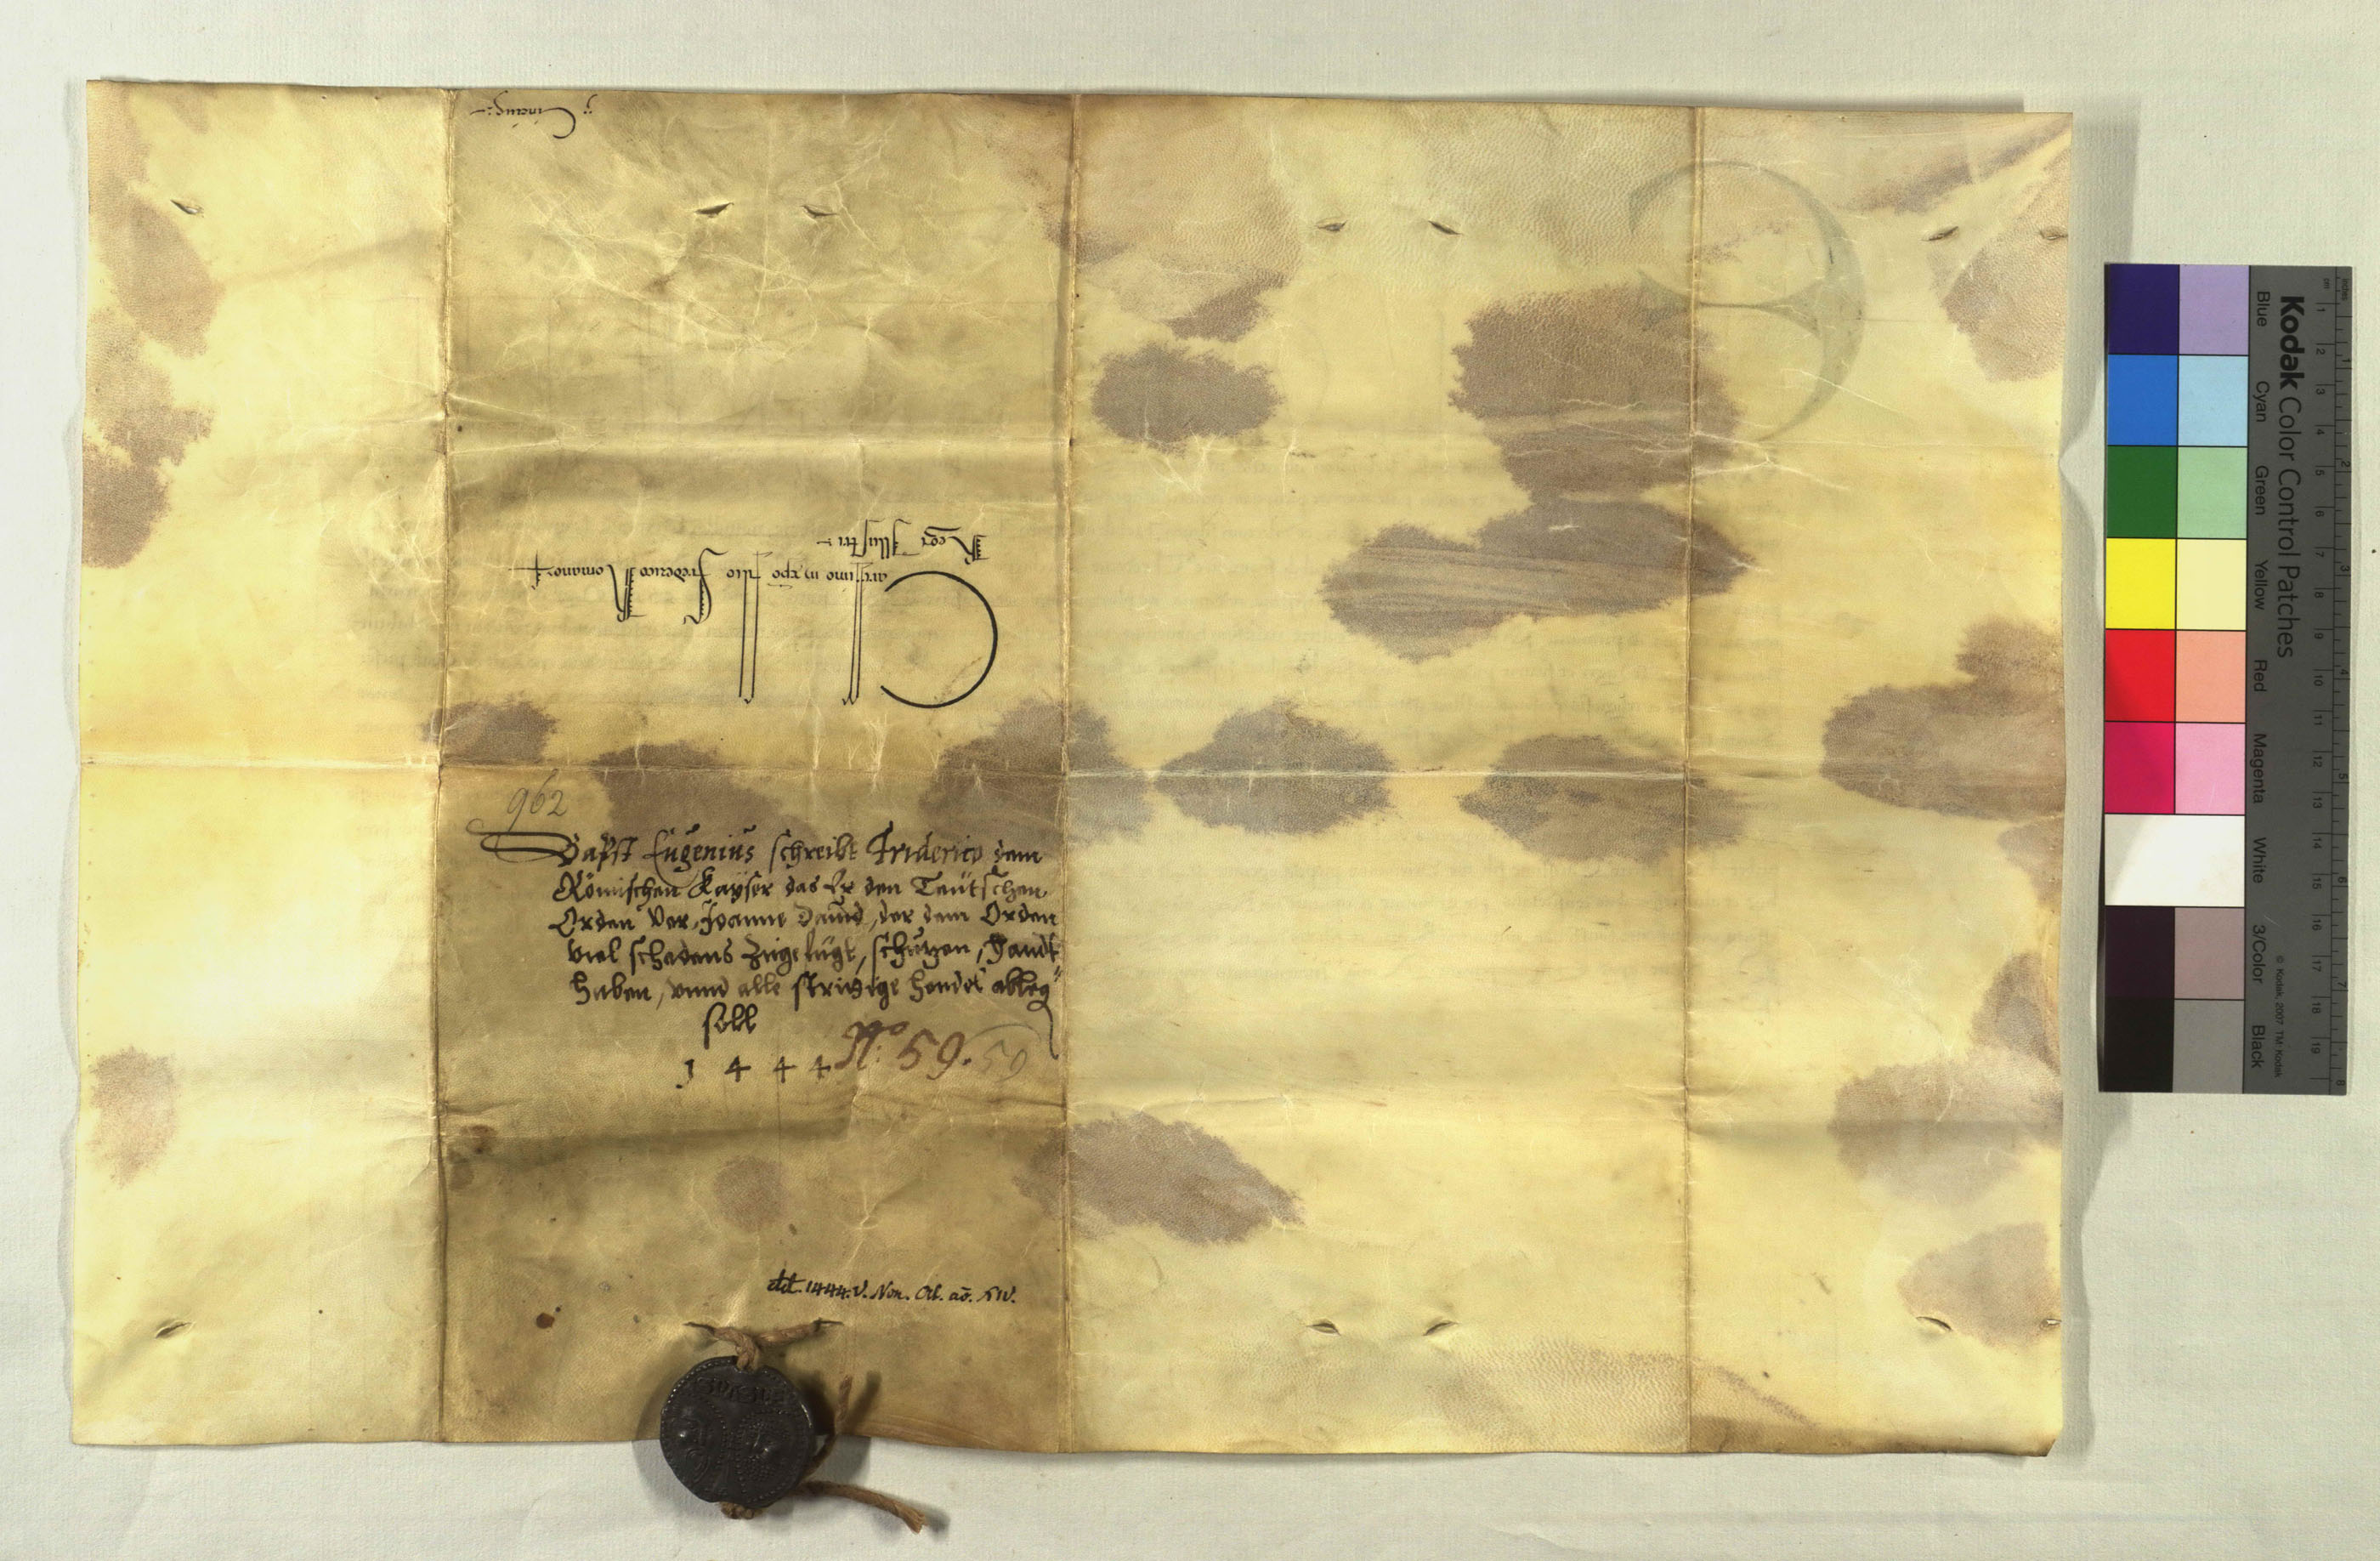 Cincius
Carissimo in xpo filio Frederico Romanor
Regi Illustri
962
Bapst Eugenius schreibt Friderico dem
Römischen Kayser das Er den Teütschen
Orden vor Joanne David, der dem Orden
viel schadens zugefügt, schützen, handt
haben, vnnd alle stritige hendel ableg
soll
1444
N: 59. 59
dd. 1444. V. Non. ao. XIV.
Kodak Color Control Patches
Blue Cyan Green Yellow Red Magenta White 3/Color Black
© Kodak, 2007 TM: Kodak
cm 1 2 3 4 5 6 7 8 9 10 11 12 13 14 15 16 17 18 19
inches 1 2 3 4 5 6 7 8